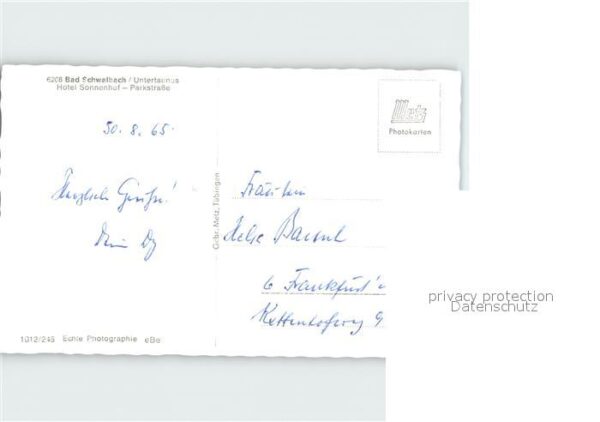 6208 Bad Schwalbach / Untertaunus
Hotel Sonnenhof – Parkstraße
30.8.65.
Herzliche Grüße!
Gebr. Metz, Tübingen
Metz
Photokarten
Fräulein
6 Frankfurt
Kettenhofweg 9
1012/245 Echte Photographie eBe
privacy protection
Datenschutz